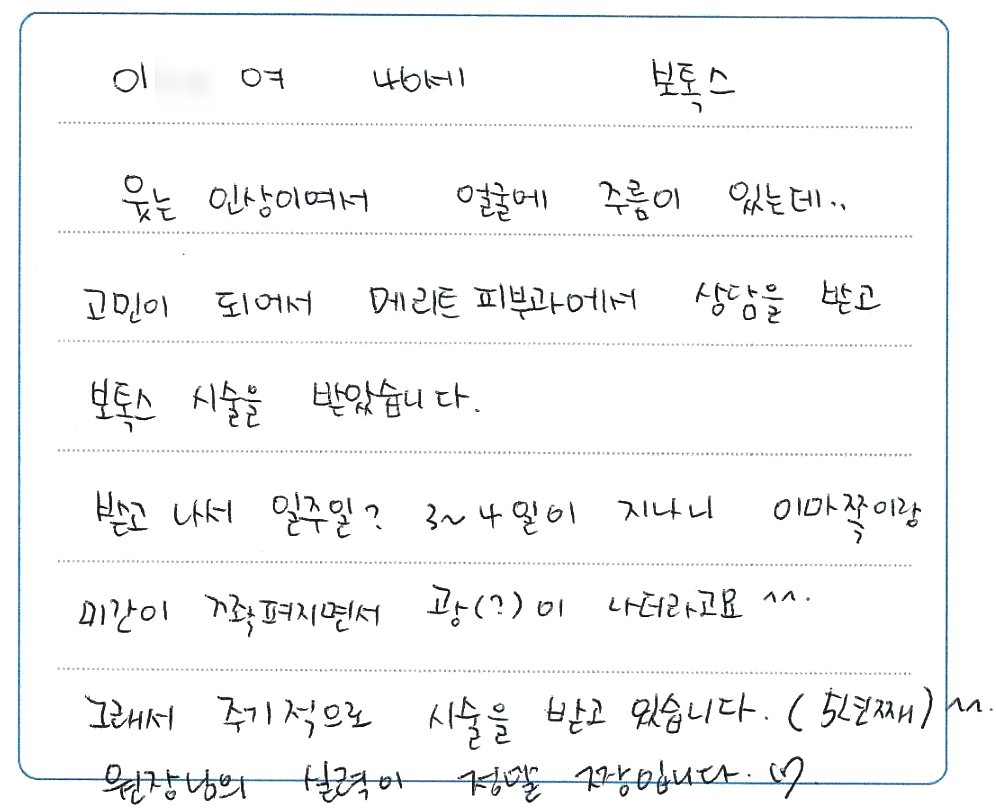 이 여 46세 보톡스
웃는 인상이여서 얼굴에 주름이 있는데..
고민이 되어서 메리트 피부과에서 상담을 받고
보톡스 시술을 받았습니다.
받고 나서 일주일? 3~4일이 지나니 이마쪽이랑
미간이 쫙펴지면서 광(?)이 나더라고요 ^^.
그래서 주기적으로 시술을 받고 있습니다. (5년째) ^^.
원장님의 실력이 정말 짱입니다. ♡.